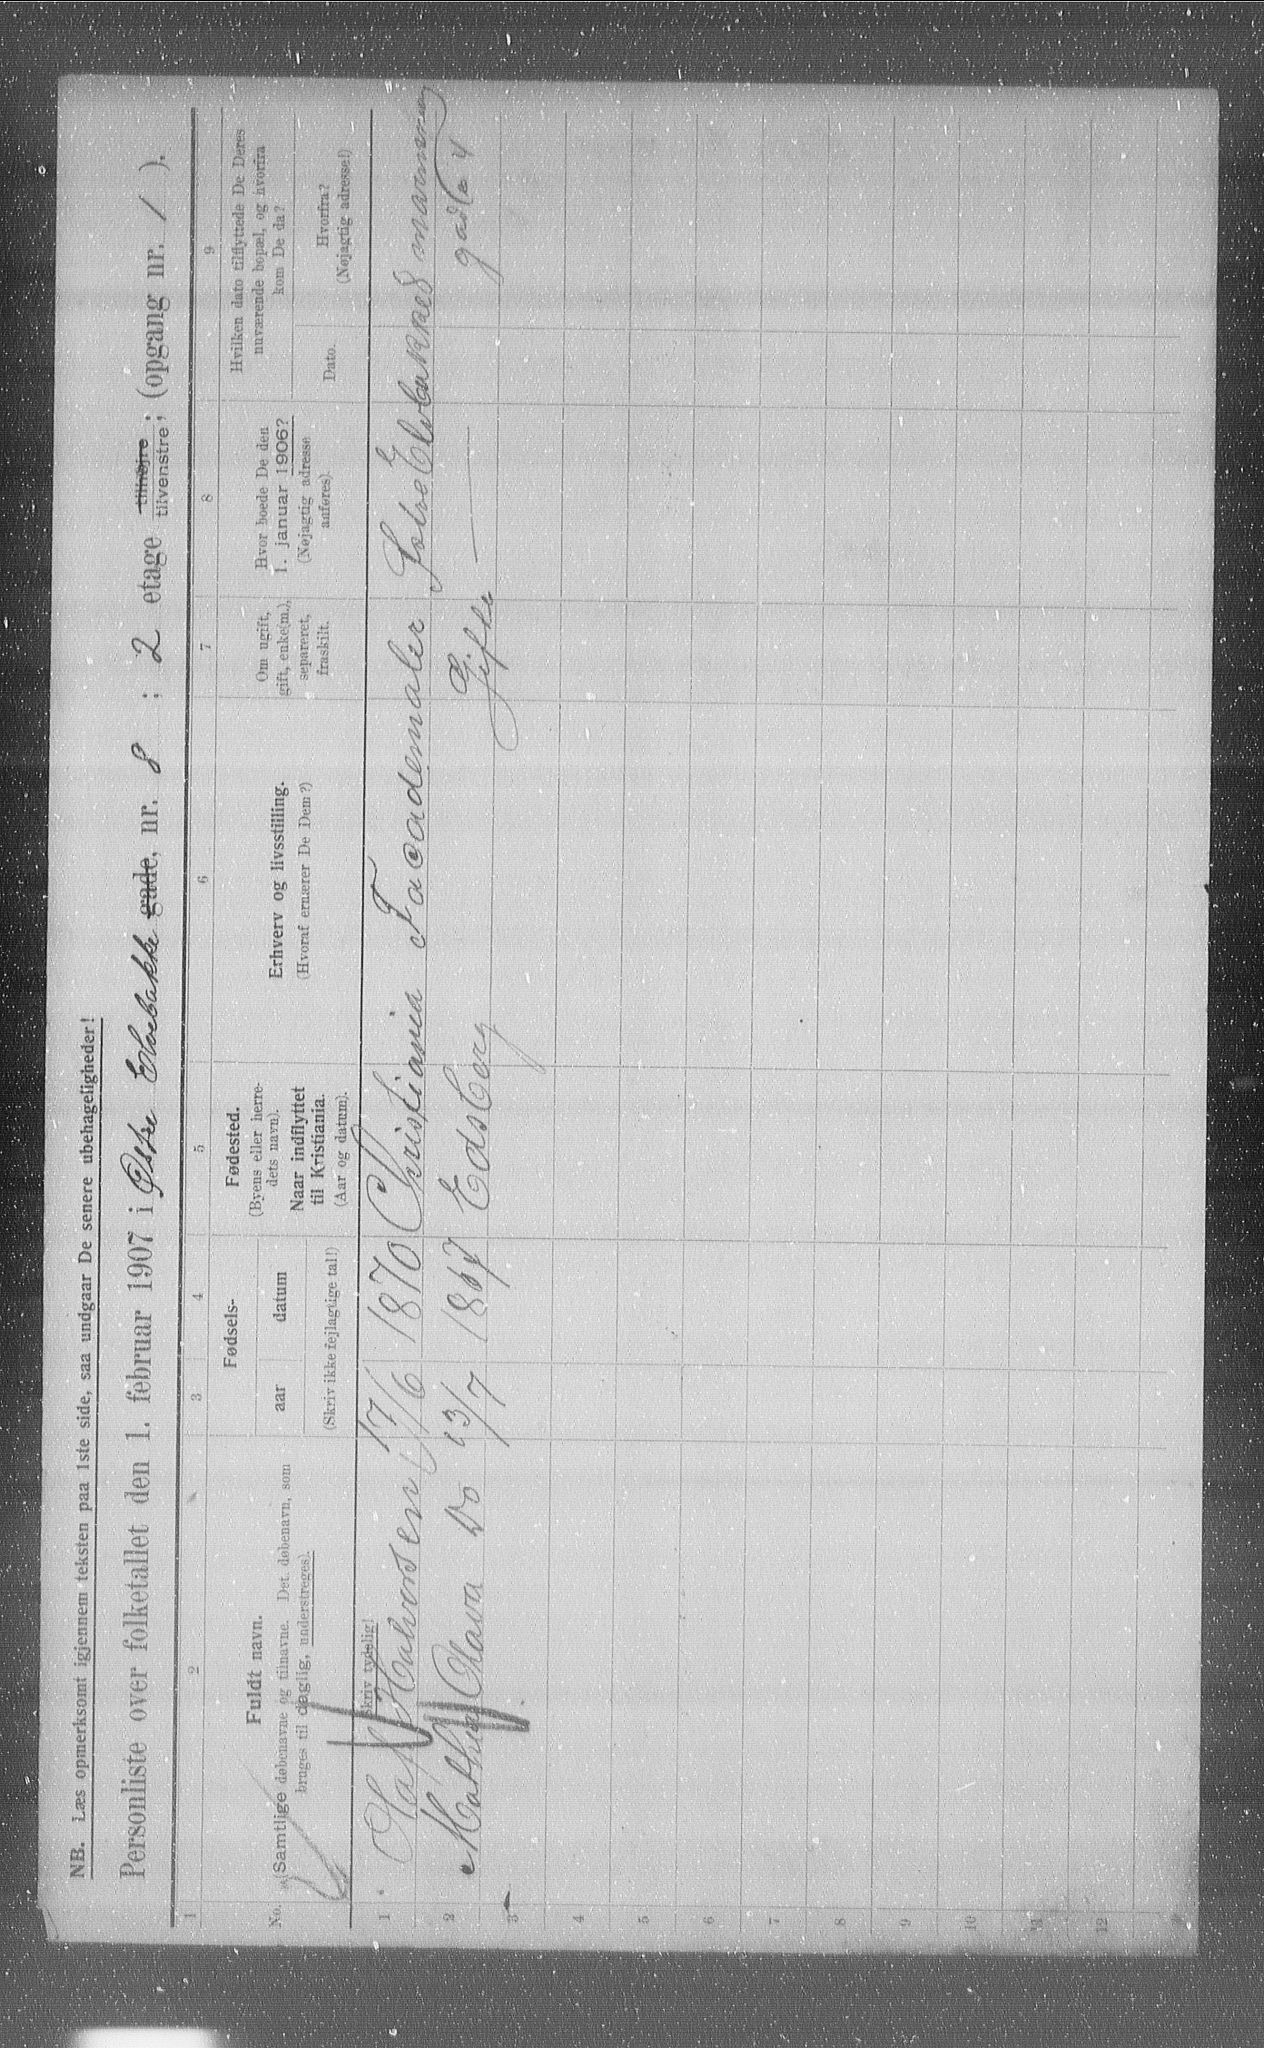 NB. Læs opmerksomt igjennem teksten paa 1ste side, saa undgaar De senere ubehageligheder!
Personliste over folketallet den 1. februar 1907 i Østre Elvebakke gade, nr. 8 ; 2 etage tilhøjre tilvenstre ; (opgang nr. 1 ).
1 2 3 4 5 6 7 8 9
No.
Fuldt navn.
(Samtlige døbenavne og tilnavne. Det døbenavn, som
bruges til daglig, understreges).
Skriv tydelig!
Fødsels-
aar datum
(Skriv ikke fejlagtige tal!)
Fødested.
(Byens eller herre-
dets navn).
Naar indflyttet
til Kristiania.
(Aar og datum).
Erhverv og livsstilling.
(Hvoraf ernærer De Dem?)
Om ugift,
gift, enke(m.),
separeret,
fraskilt.
Hvor boede De den
1. januar 1906?
(Nøjagtig adresse
anføres).
Hvilken dato tilflyttede De Deres
nuværende bopæl, og hvorfra
kom De da?
Dato.
Hvorfra?
(Nøjagtig adresse!)
1 Olaf Halvorsen 17/6 1870 Christiania Facademaler
2 Mathea Olava Do 23/7 1867 Edsberg Gifte — gade 4
3
4
5
6
7
8
9
10
11
12